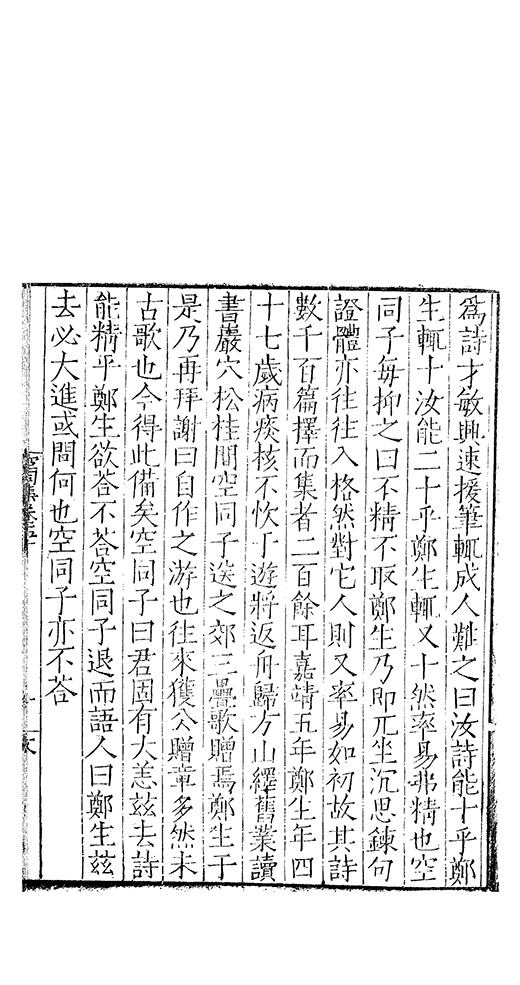 爲詩才敏興速援筆輒成人難之曰汝詩能十乎鄭
生輒十汝能二十乎鄭生輒又十然率易弗精也空
同子每抑之曰不精不取鄭生乃即兀坐沉思鍊句
證體亦往往入格然對它人則又率易如初故其詩
數千百篇擇而集者二百餘耳嘉靖五年鄭生年四
十七歲病痰核不忺于遊將返舟歸方山繹舊業讀
書巖穴松桂間空同子送之郊三疊歌贈焉鄭生于
是乃再拜謝曰自作之游也往來獲公贈章多然未
古歌也今得此備矣空同子曰君固有大恙兹去詩
能精乎鄭生欲荅不荅空同子退而語人曰鄭生兹
去必大進或問何也空同子亦不荅
空同集卷五十